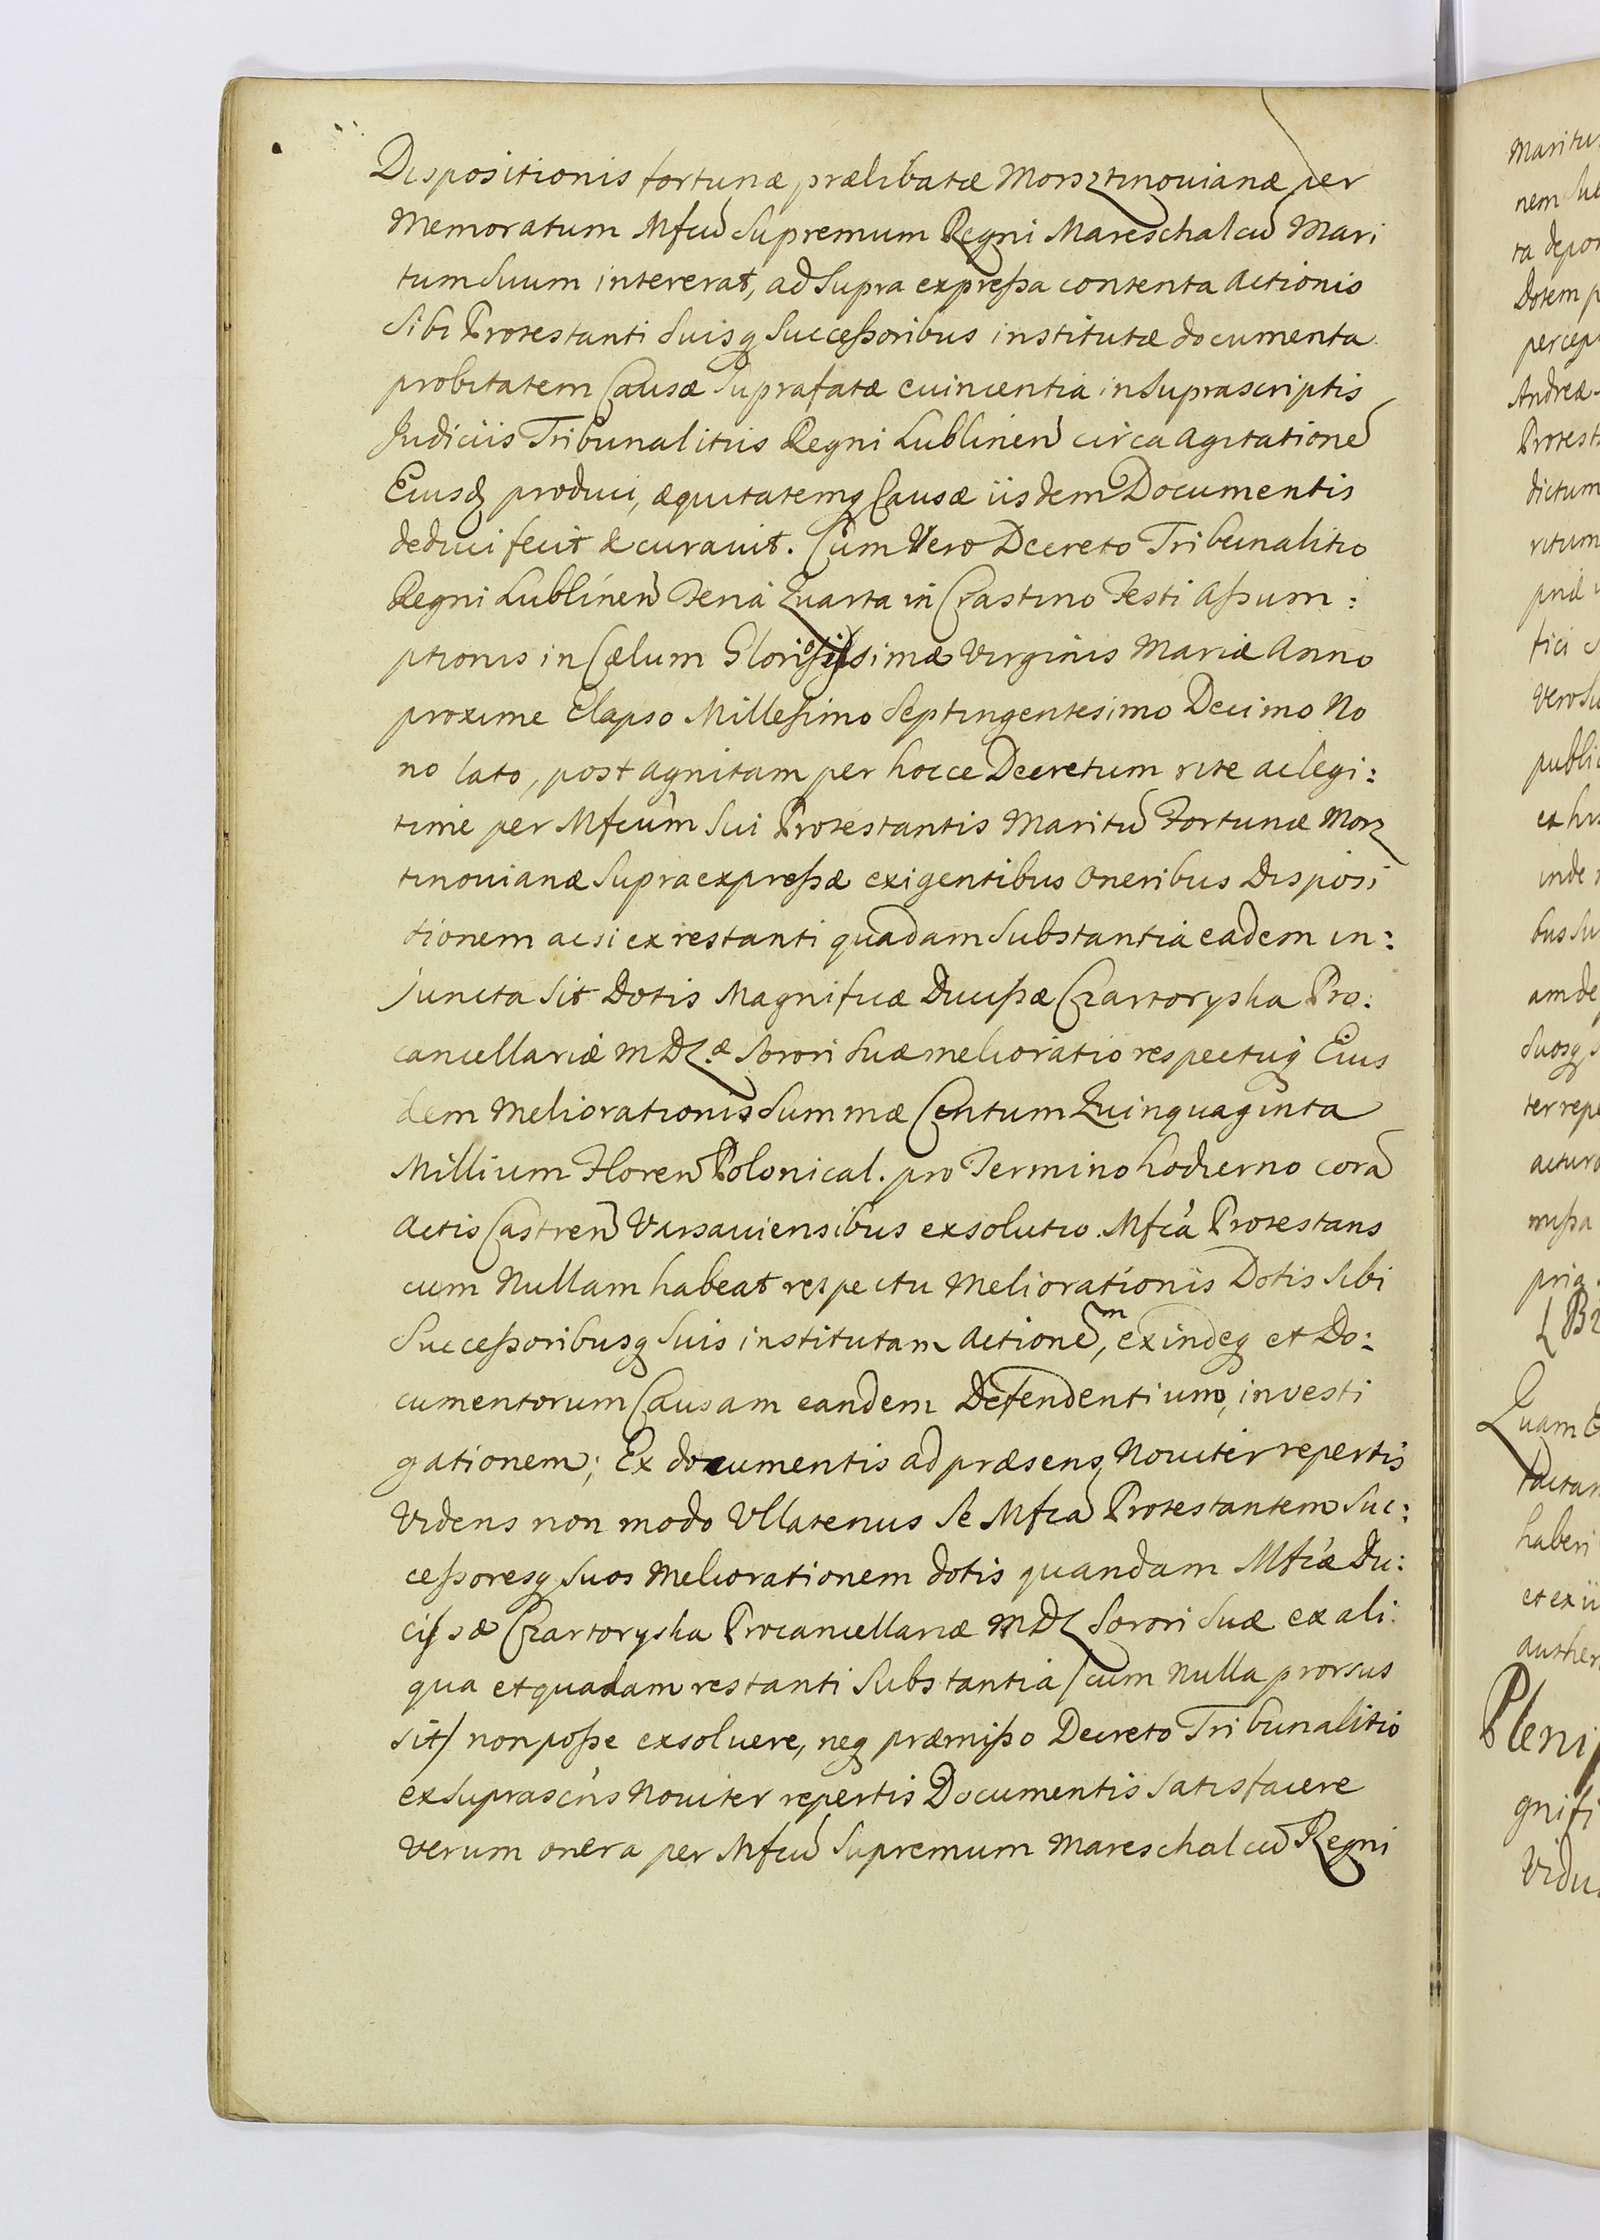 Dispositionis fortunæ prælibatæ Morsztinovianæ per
Memoratum Mfcu̅ Supremum Regni Mareschalcu̅ Mari
tum Suum intererat, ad Supra expreßa contenta Actionis
Sibi Protestanti Suisq̨ Succeßoribus institutæ documenta
probitatem Causæ Suprafatæ evincentia in Suprascriptis
Judiciis Tribunalitiis Regni Lublinen̅ circa Agitatione̅
Eiusd̨ produci, æquitatemq̨ Causæ iisdem Documentis
deduci fecit & curavit. Cùm Vero Decreto Tribunalitio
Regni Lublinen̅ Feria Quarta in Crastino Festi Aßum:
ptionis in Cælum Gloriosißimæ Virginis Mariæ Anno
proxime Elapso Milleßimo Septingentesimo Decimo No
no lato, post agnitam per hocce Decretum rite ac legi:
time per Mfcum Sui Protestantis Maritu̅ Fortunæ Morz
tinovianæ Supraexpreßæ exigentibus Oneribus Disposi
tionem ac si ex restanti quadam Substantia eadem in:
juncta Sit Dotis Magnificæ Ducißæ Czartoryska Pro:
cancellariæ MDL.æ Sorori Suæ melioratio respectuq̨ Eius
dem Meliorationis Summæ Centum Quinquaginta
Millium Floren̅ Polonical. pro Termino hodierno cora̅
Actis Castren̅ Varsaviensibus exsolutio. Mfca Protestans
cum Nullam habeat respectu Meliorationis Dotis Sibi
Succeßoribusq̨ Suis institutam Actione̅m, exindeq̨ et Do:
cumentorum Causam eandem Defendentium, investi
gationem; Ex documentis ad præsens Noviter repertis
Videns non modo Ullatenus Se Mfca̅ Protestantem Suc:
ceßoresq̨ Suos Meliorationem dotis quandam Mfcæ Du:
cißæ Czartoryska Procancellariæ MDL Sorori Suæ ex ali:
qua et quadam restanti Substantia /cum Nulla prorsus
sit/ non poße exsolvere, neq̨ præmißo Decreto Tribunalitio
ex Suprascris Noviter repertis Documentis Satisfacere
verum onera per Mfcu̅ Supremum Mareschalcu̅ Regni
nem
Dotem
Andreæ
dictum
Quam
haberi
et ex ii
gnifi